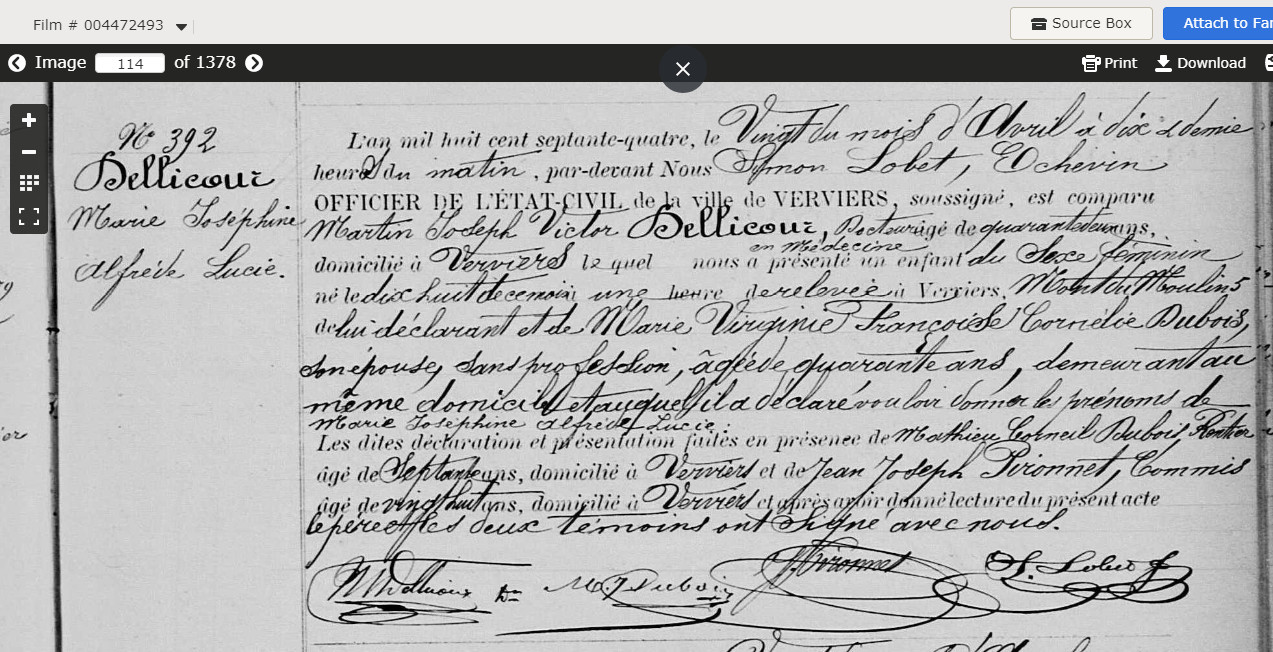 Film # 004472493
Source Box
Attach to Fa
Image 114 of 1378
Print
Download
N° 392
Dellicour
Marie Joséphine
Alfréde Lucie.
L'an mil huit cent septante-quatre, le Vingt du mois d'Avril à dix & demie
heures du matin, par-devant Nous Simon Lobet, Echevin
OFFICIER DE L'ÉTAT-CIVIL de la ville de VERVIERS, soussigné, est comparu
Martin Joseph Victor Dellicour, Docteur âgé de quarante deux ans,
en Médecine
domicilié à Verviers lequel nous a présenté un enfant du Sexe féminin
né le dix huit de ce mois à une heure de relevée à Verviers, Mont du Moulin 5
de lui déclarant et de Marie Virginie Françoise Cornélie Dubois,
son épouse, sans profession, âgée de quarante ans, demeurant au
même domicile et auquel il a déclaré vouloir donner les prénoms de
Marie Joséphine Alfréde Lucie.
Les dites déclaration et présentation faites en présence de Mathieu Corneil Dubois, Rentier
âgé de Septante ans, domicilié à Verviers et de Jean Joseph Pironnet, Commis
âgé de vingt huit ans, domicilié à Verviers et après avoir donné lecture du présent acte
le père et les deux témoins ont Signé avec nous.
M. Dellicour
M. C. Dubois
J. Pironnet
S. Lobet